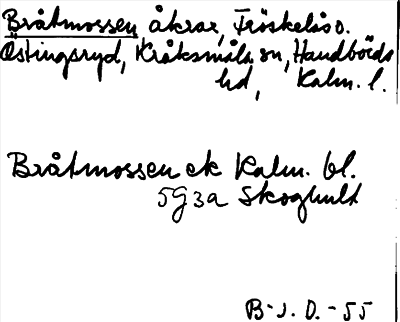 Bråtmossen åkrar, Fröskelås o.
Östingsryd, Kråksmåla sn, Handbörds
hd, Kalm. l.
Bråtmossen ek Kalm. bl.
5G3a Skoghult
B-J. D. -55